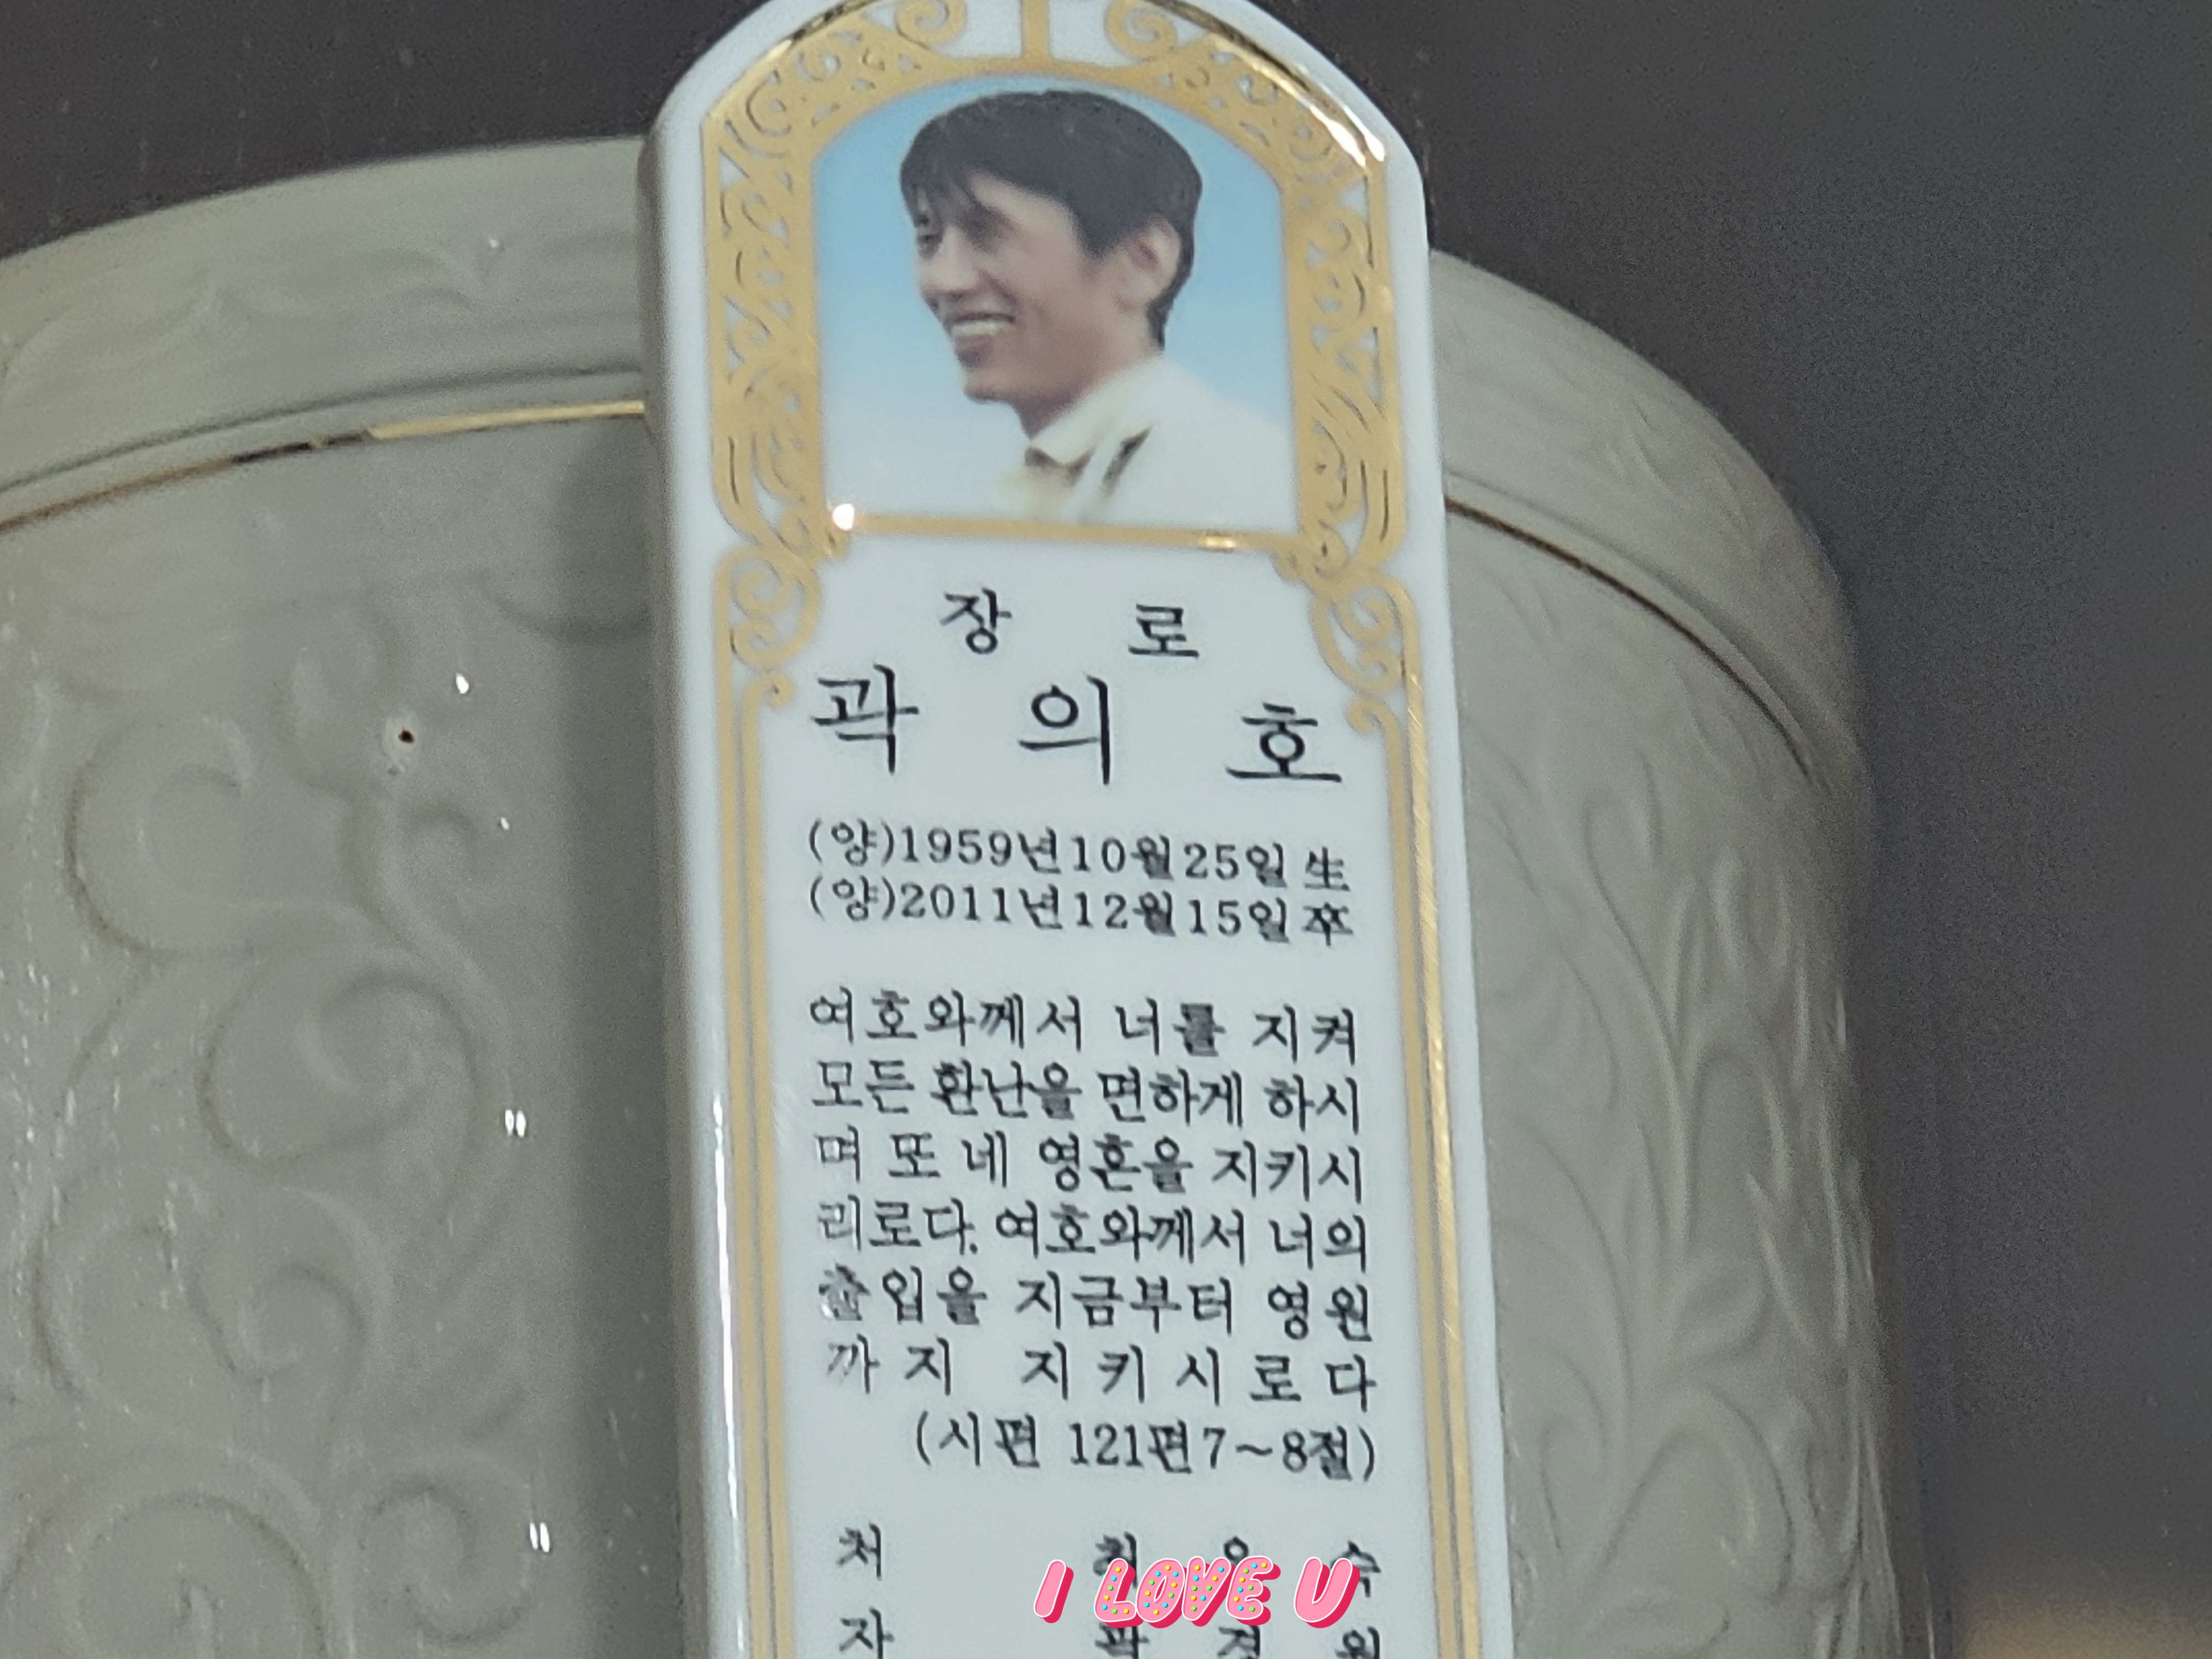 장 로
곽 의 호
(양)1959년10월25일生
(양)2011년12월15일卒
여호와께서 너를 지켜
모든 환난을 면하게 하시
며 또 네 영혼을 지키시
리로다. 여호와께서 너의
출입을 지금부터 영원
까지 지키시로다
(시편 121편7~8절)
처 숙
I LOVE U
자 곽